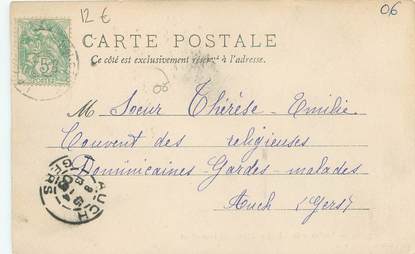 12 €
06
CARTE POSTALE
Ce côté est exclusivement réservé à l'adresse.
5c
M Soeur Thérèse - Emilie
Couvent des religieuses
Dominicaines - Gardes-malades
Auch (Gers)
AUCH
GERS